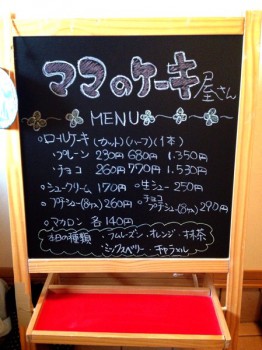 ママのケーキ屋さん
MENU
○ロールケーキ(カット)(ハーフ)(1本)
・プレーン 230円 680円 1.350円
・チョコ 260円 770円 1.530円
○シュークリーム 170円 ○生シュー 250円
○プチシュー(8ケ入)260円 ○チョコプチシュー(8ケ入)290円
○マカロン 各140円
本日の種類 ・ラムレーズン・オレンジ・抹茶
・ミックスベリー・キャラメル